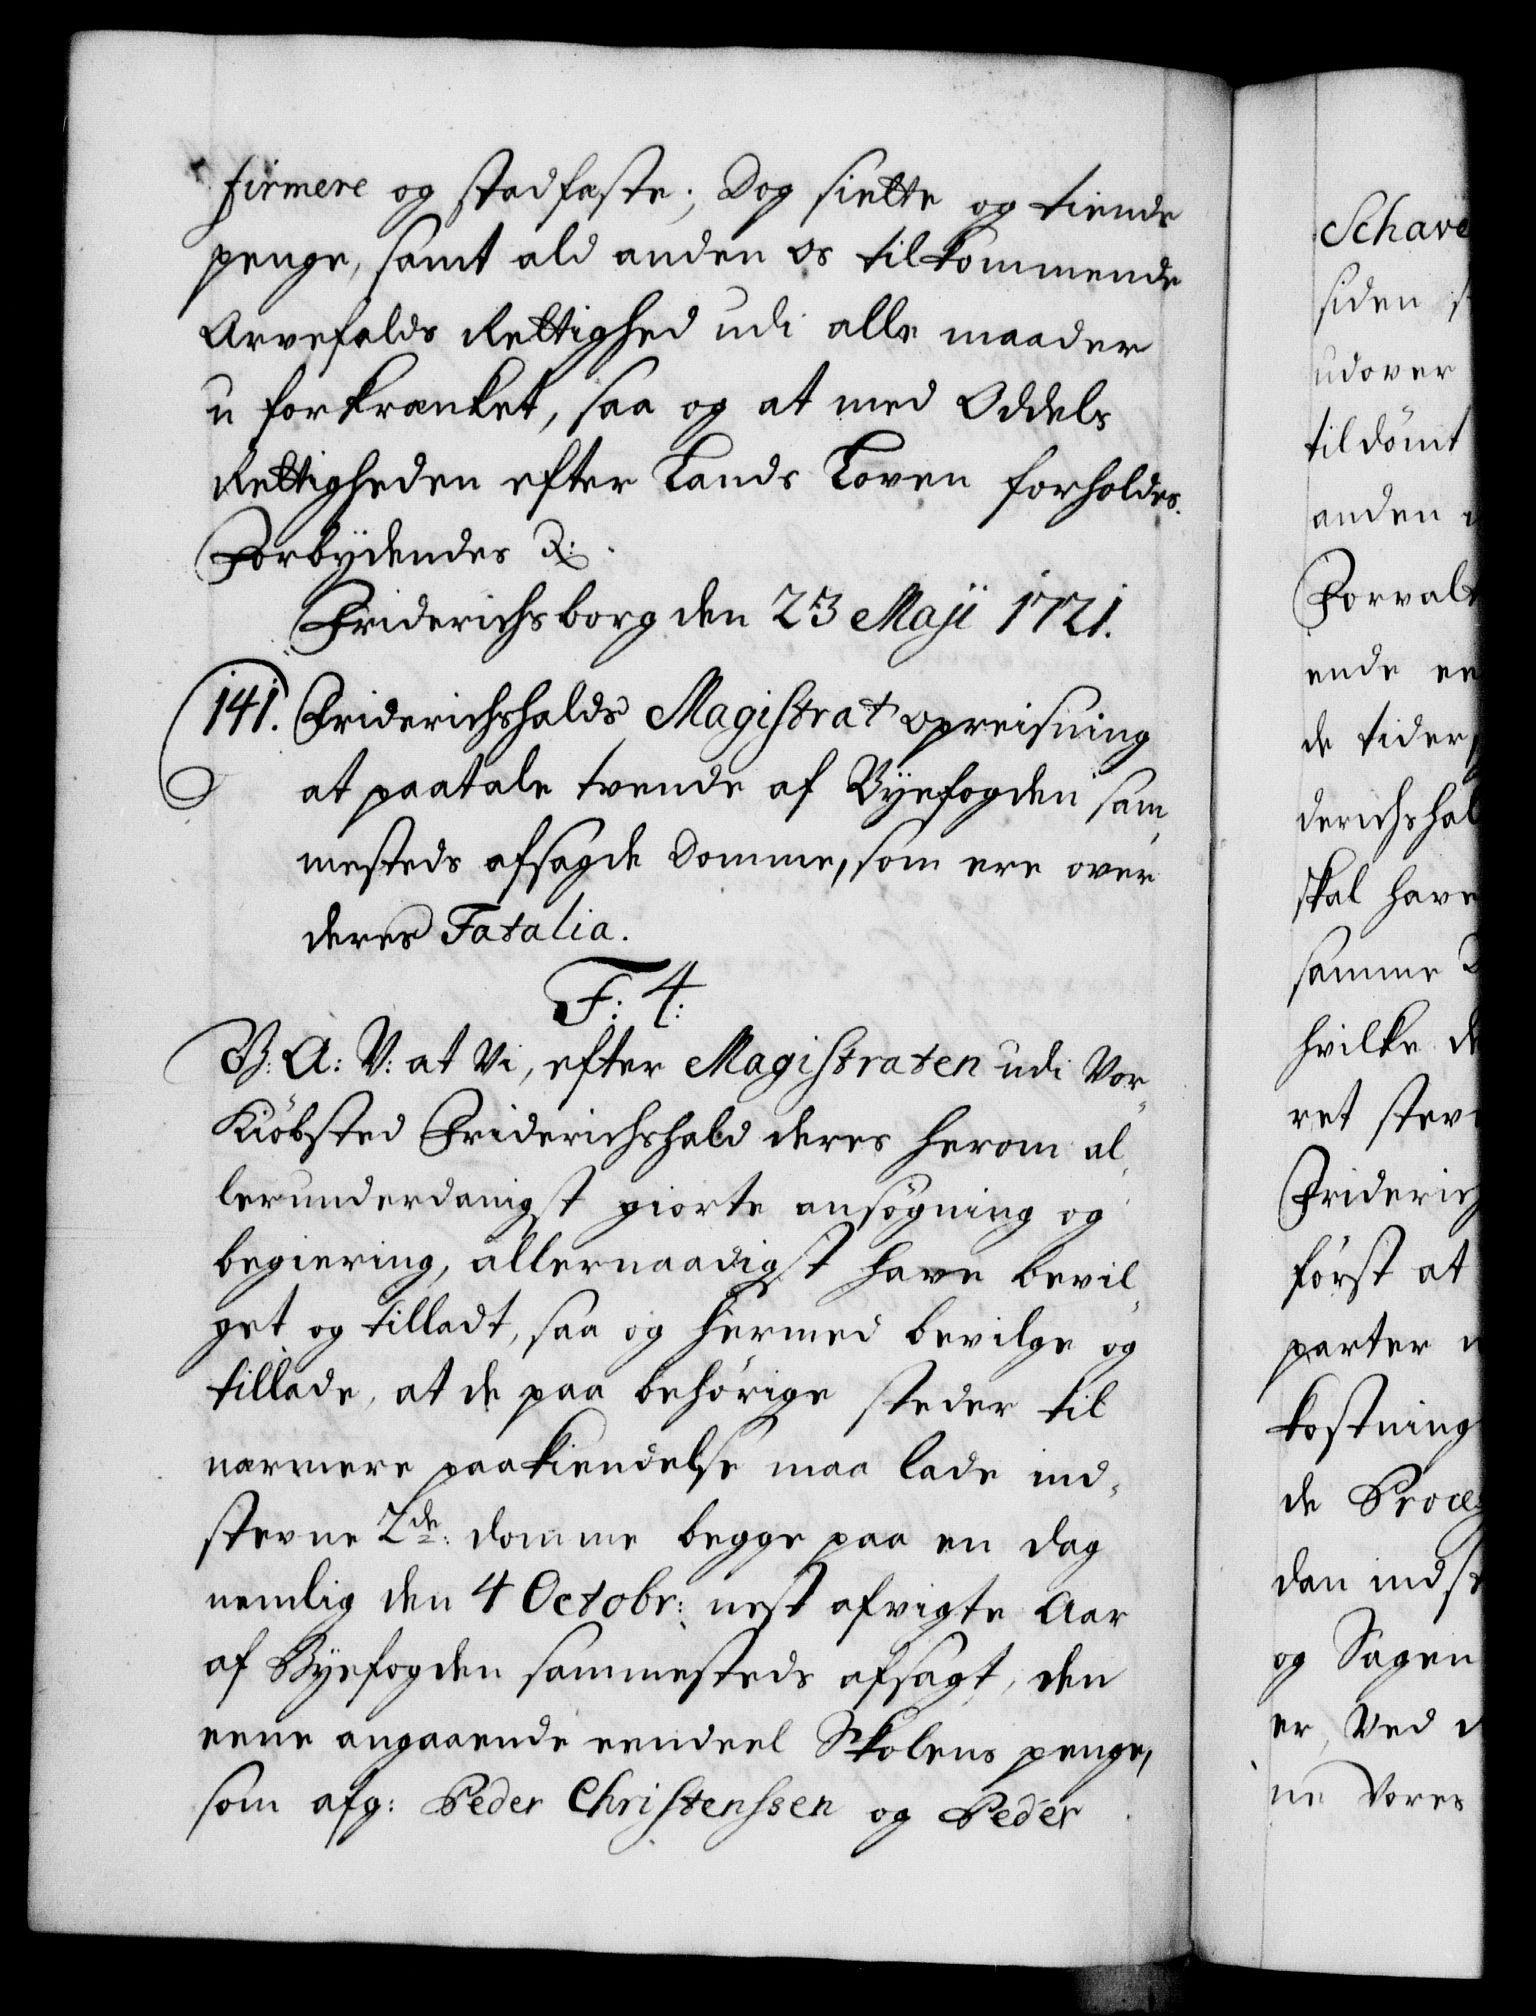 firmere og stadfæste; Dog siette og tiende
penge, samt ald anden os tilkommende
Arvefalds Rettighed udi alle maader
u forkrænket, saa og at med Oddels
Rettigheden efter Lands Loven forholdes.
Forbydendes &:
Friderichsborg den 23 Maji 1721.
141. Friderichshalds Magistrat opreisning
at paatale tvende af Byefogden sam
mesteds afsagde Domme, som ere over
deres Fatalia.
F: 4:
G: A: V: at Vi, efter Magistraten udi Vor
Kiöbsted Friderichshald deres herom al
lerunderdanigst giorte ansögning og
begiering, allernaadigst have bevil
get og tilladt, saa og hermed bevilge og
tillade, at de paa behörige steder til
nærmere paakiendelse maa lade ind
stevne 2de: domme begge paa en dag
nemlig den 4 Octobr: nest afvigte Aar
af Byefogden sammesteds afsagt, den
eene angaaende eendeel Skolens penge,
som afg: Peder Christenssen og Peder
Schave
siden
udover
tildömt
anden
Forvalt
ende
de tider,
derichshal
skal have
samme
hvilke
ret
Friderich
först at
parter
kostning
de Proces
dan indst
og Sagen
er, Ved
ne Vores